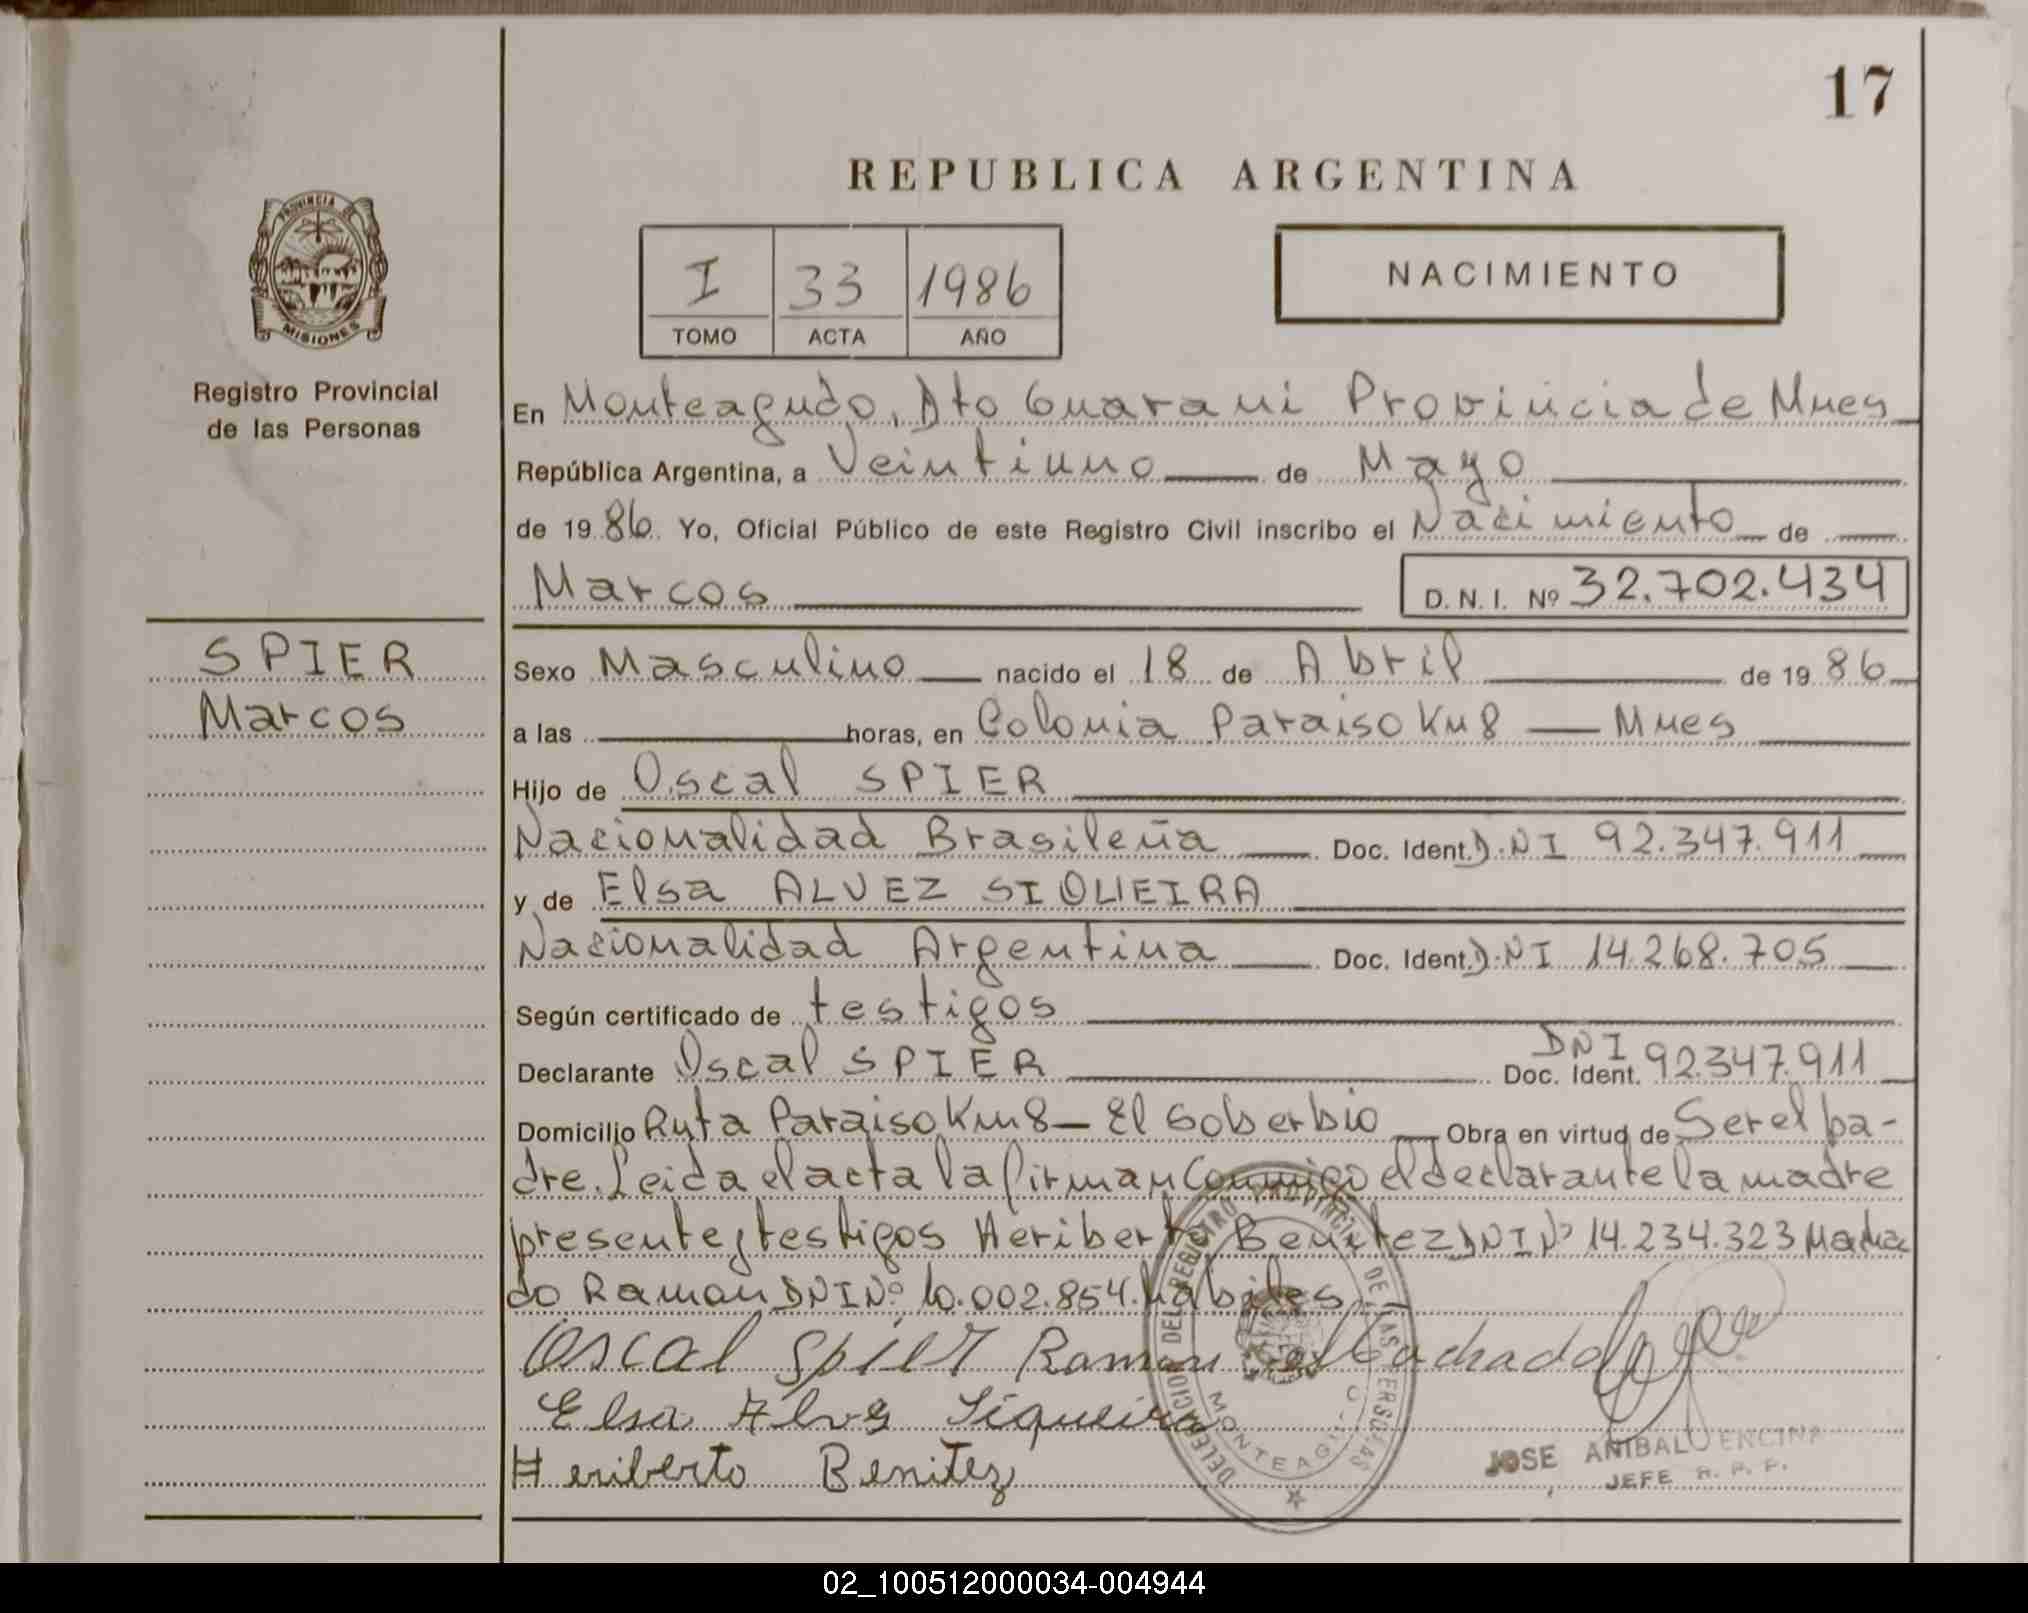 17
REPUBLICA ARGENTINA
PROVINCIA DE
MISIONES
Registro Provincial
de las Personas
I 33 1986
TOMO ACTA AÑO
NACIMIENTO
En Monteagudo, Dto Guarani Provincia de Mnes
República Argentina, a Veintiuno de Mayo
de 1986. Yo, Oficial Público de este Registro Civil inscribo el Nacimiento de
Marcos D. N. I. Nº 32.702.434
SPIER
Marcos
Sexo Masculino nacido el 18 de Abril de 1986
a las horas, en Colonia Paraiso Km 8 — Mnes
Hijo de Oscal SPIER
Nacionalidad Brasileña Doc. Ident. D.NI 92.347.911
y de Elsa ALVEZ SIQUEIRA
Nacionalidad Argentina Doc. Ident. D.NI 14.268.705
Según certificado de testigos
Declarante Oscal SPIER Doc. Ident. DNI 92.347.911
Domicilio Ruta Paraiso Km 8 — El Soberbio Obra en virtud de Ser el pa-
dre. Leida el acta la firman Conmigo el declarante la madre
presente y testigos Heriberto Benitez DNI Nº 14.234.323 Macha
do Ramon DNI Nº 10.002.854. habiles
Oscal Spier Ramon Machado
Elsa Alves Siqueira
Heriberto Benitez
DELEGACION DEL REGISTRO PROVINCIAL DE LAS PERSONAS
JOSE ANIBAL ENCINA
JEFE R. P. P.
02_100512000034-004944